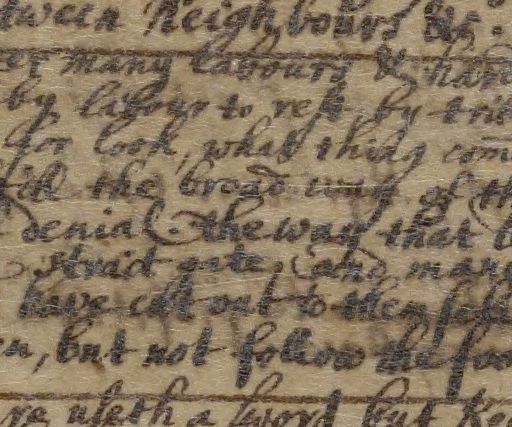 tween Neighbours &c.
many labours & hard
by labour to rest, by
for look, what thing
the broad way of
denial. the way that
strait gate, and many
have cut out to them
but not follow the
useth a sword but